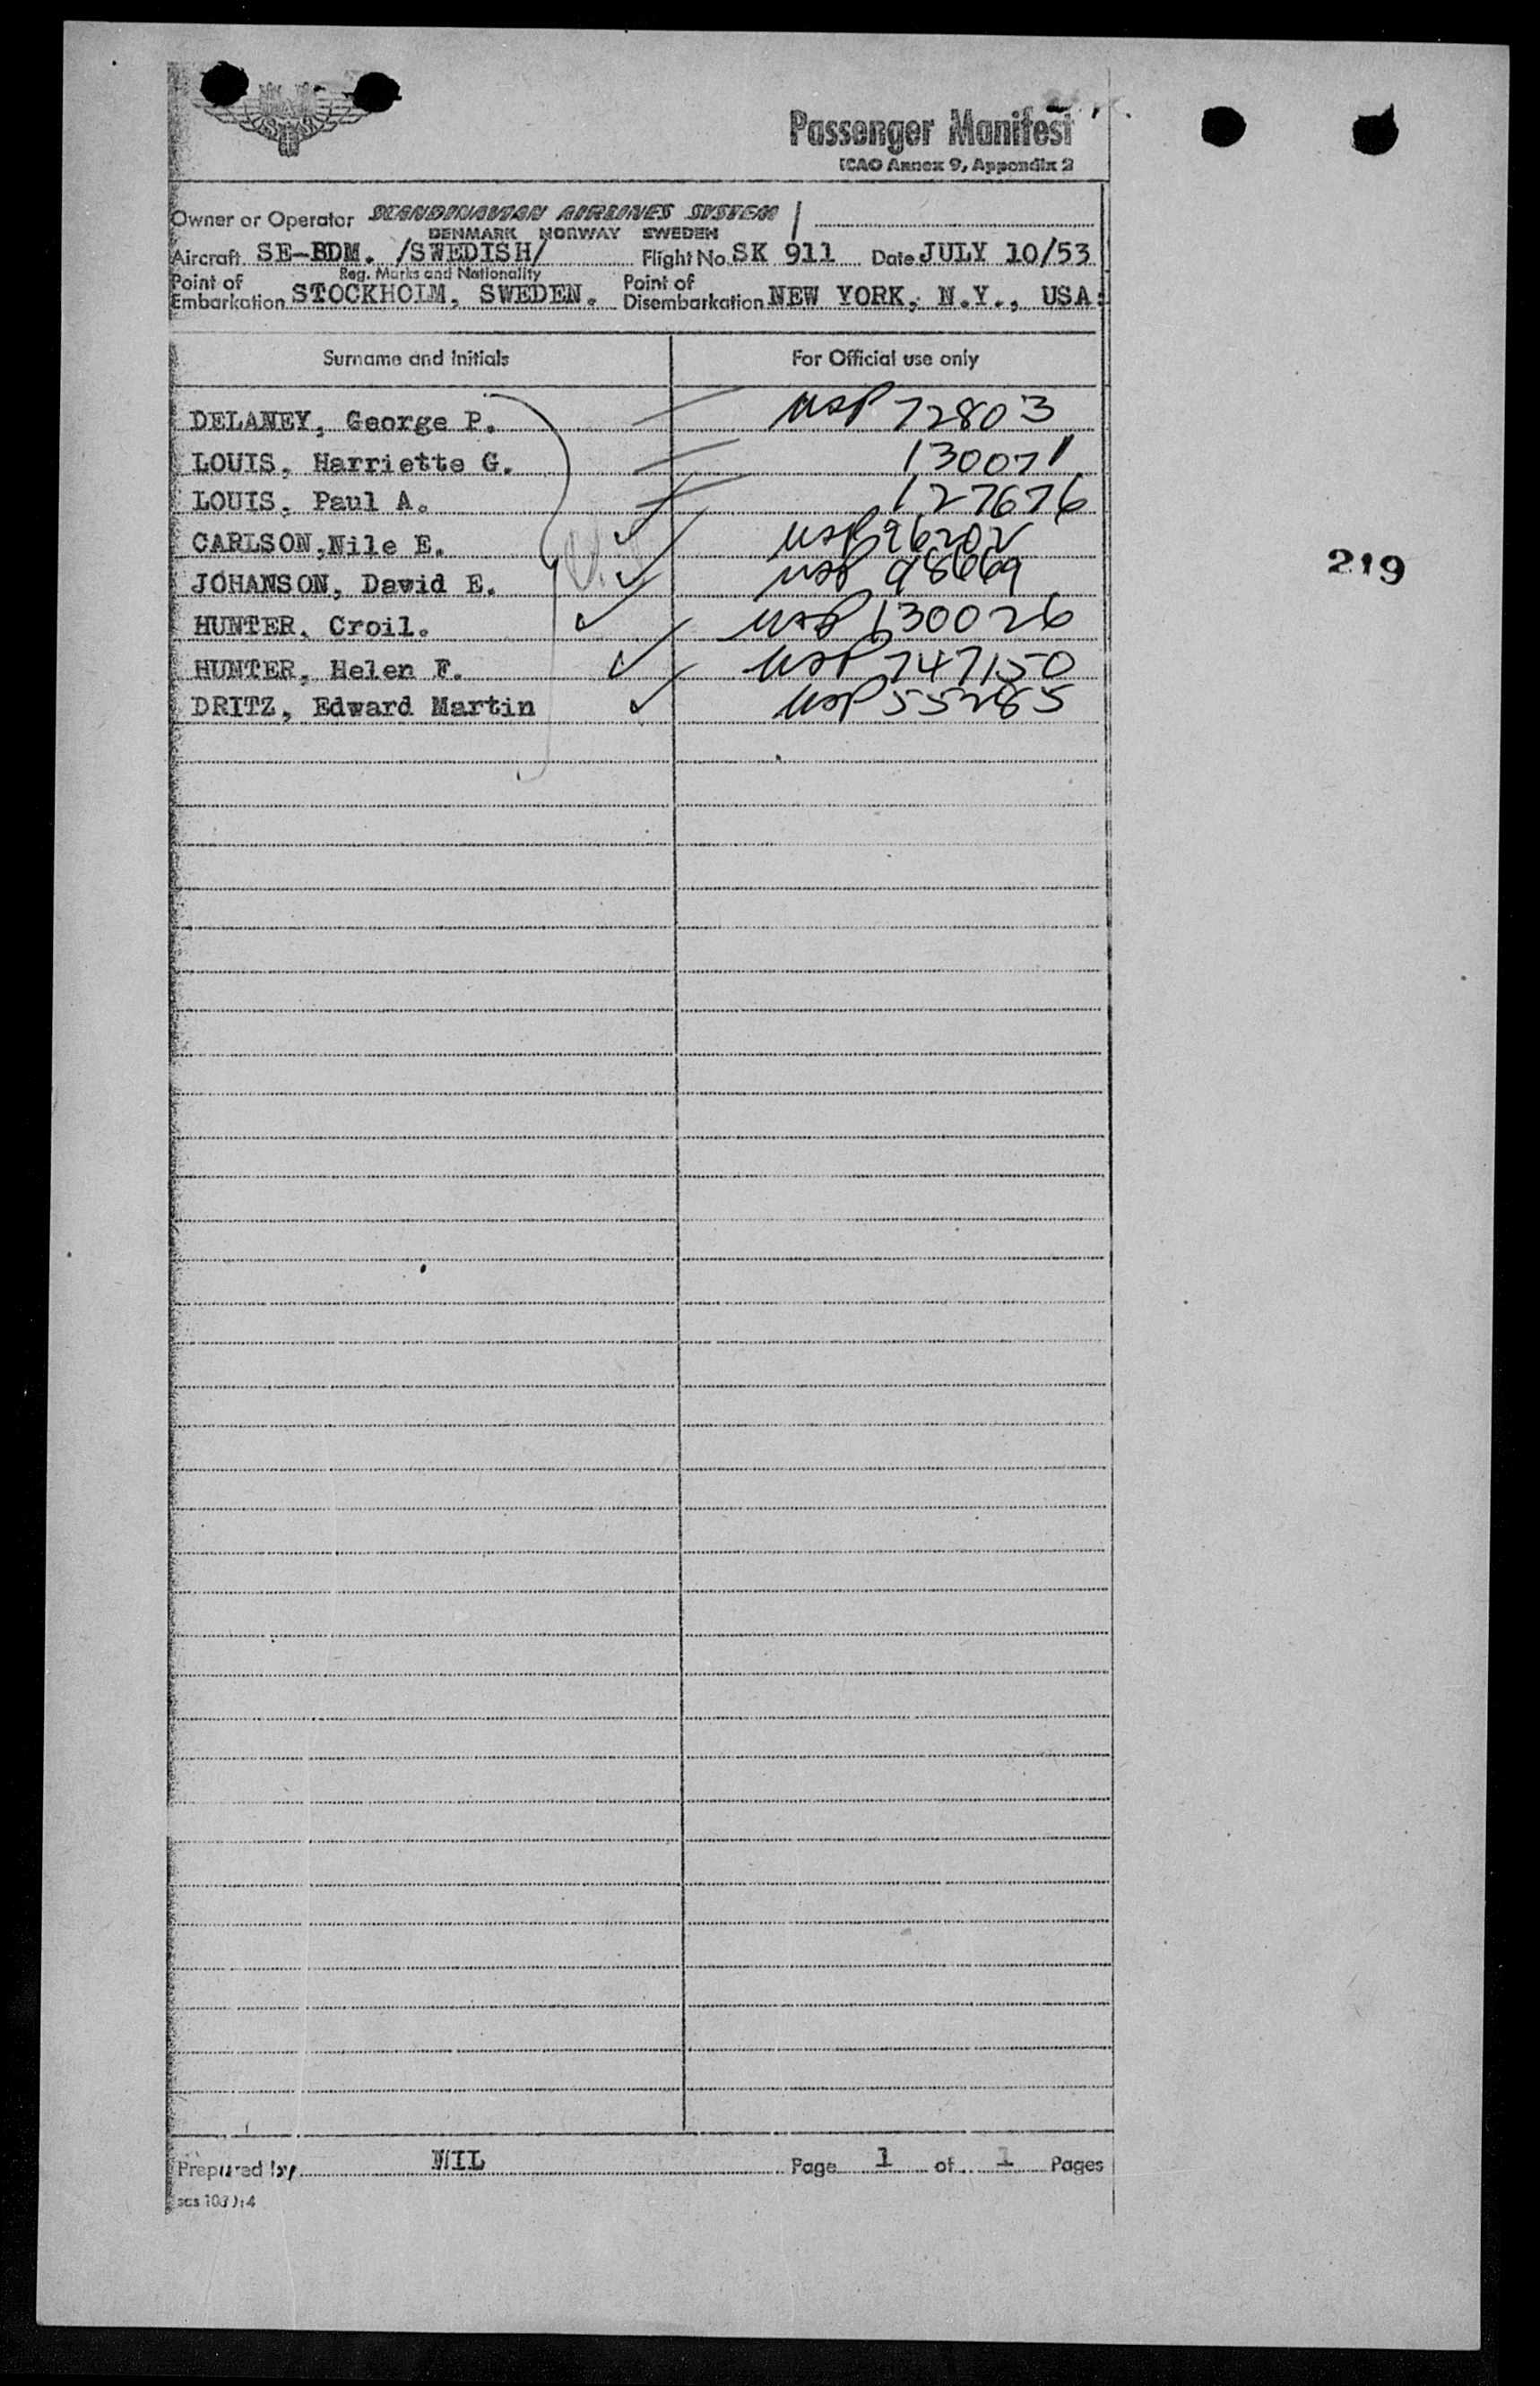 Passenger Manifest
ICAO Annex 9, Appendix 2
Owner or Operator SCANDINAVIAN AIRLINES SYSTEM
DENMARK NORWAY SWEDEN
Aircraft SE-BDM. /SWEDISH/ Flight No. SK 911 Date JULY 10/53
Reg. Marks and Nationality
Point of Embarkation STOCKHOLM, SWEDEN. Point of Disembarkation NEW YORK, N.Y., USA.
Surname and Initials For Official use only
DELANEY, George P. USP 72803
LOUIS, Harriette G. 130071
LOUIS, Paul A. 127676
CARLSON, Nile E. USP 96202
219
JOHANSON, David E. USP 98669
HUNTER, Croil. USP 130026
HUNTER, Helen F. USP 747150
DRITZ, Edward Martin USP 55285
Prepared by WIL Page 1 of 1 Pages